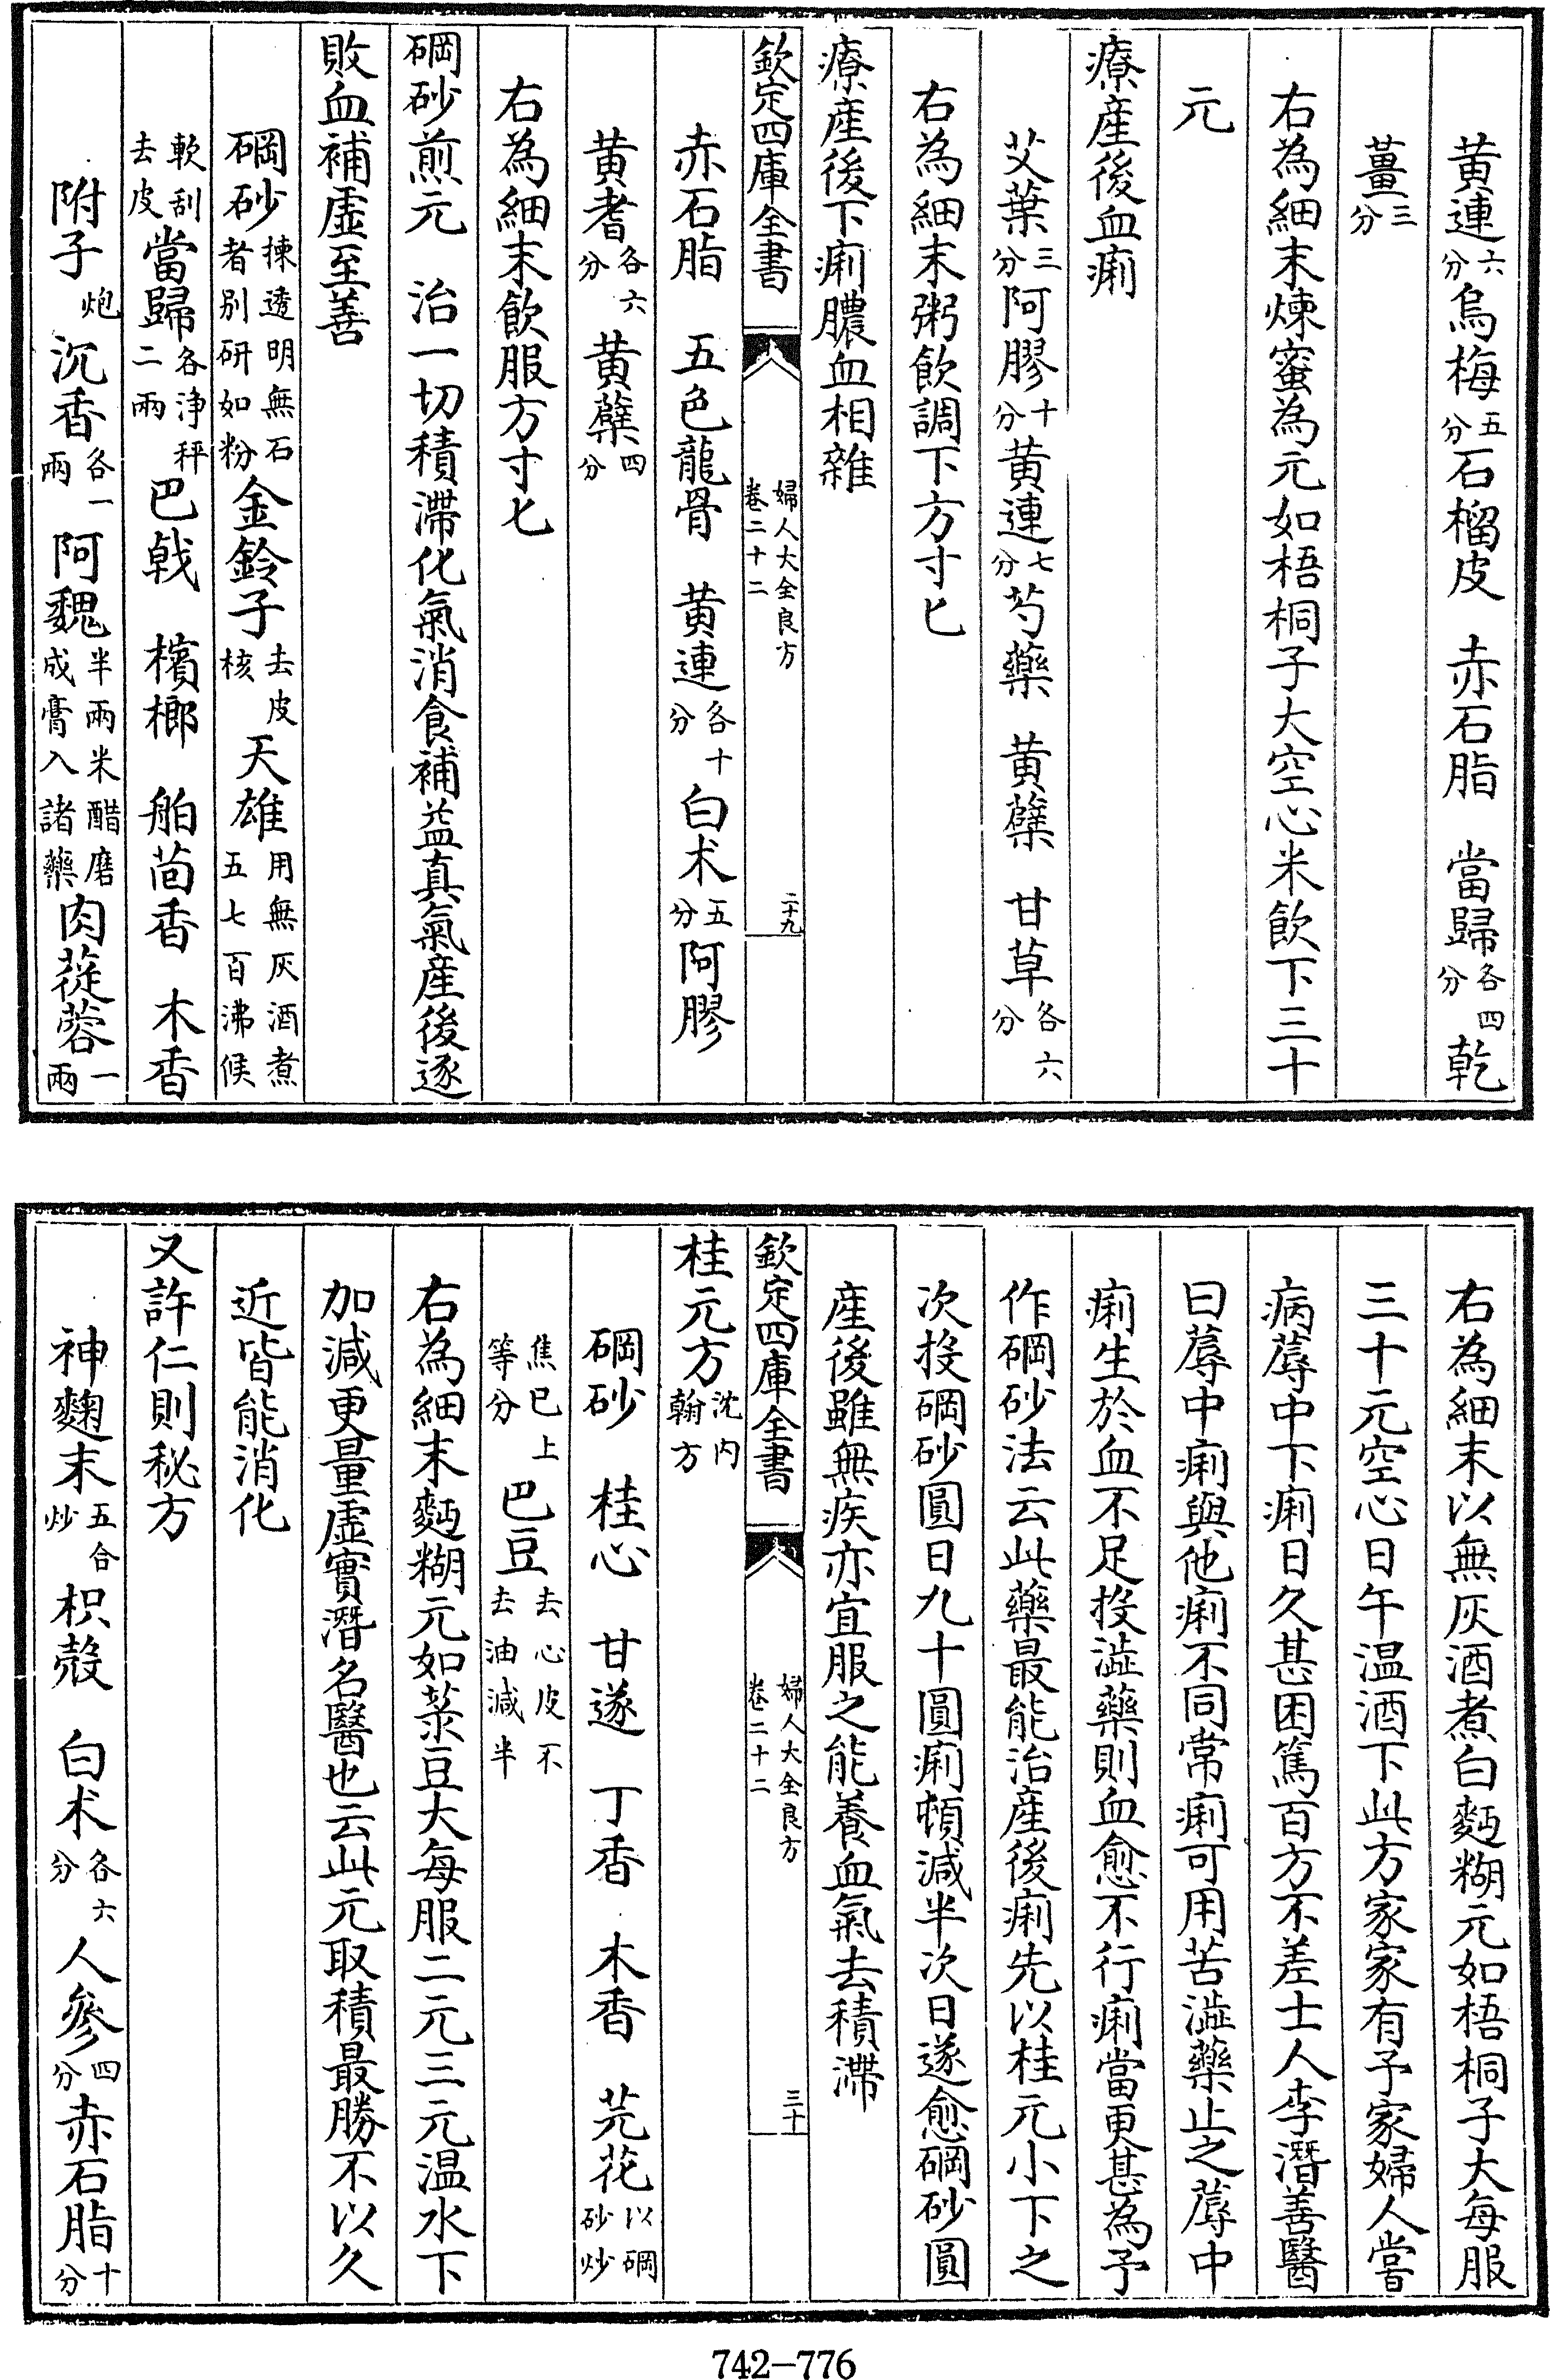 黄連六分烏梅五分石榴皮　赤石脂　當歸各四分乾
薑三分
右為細末煉蜜為元如梧桐子大空心米飲下三十
元
療産後血痢
艾葉三分阿膠十分黄連七分芍藥　黄蘗　甘草各六分
右為細末粥飲調下方寸匕
療産後下痢膿血相雜
欽定四庫全書　婦人大全良方卷二十二　二十九
赤石脂　五色龍骨　黄連各十分白术五分阿膠
黄耆各六分黄蘗四分
右為細末飲服方寸七
碙砂煎元　治一切積滯化氣消食補益真氣産後逐
敗血補虛至善
碙砂揀透明無石者别研如粉金鈴子去皮核天雄用無灰酒煮五七百沸候
軟刮去皮當歸各净秤二兩巴戟　檳榔　舶茴香　木香
附子炮沉香各一兩阿魏半兩米醋磨成膏入諸藥肉蓯蓉一兩
右為細末以無灰酒煮白麪糊元如梧桐子大每服
三十元空心日午温酒下此方家家有予家婦人嘗
病蓐中下痢日久甚困篤百方不差士人李潛善醫
曰蓐中痢與他痢不同常痢可用苦澁藥止之蓐中
痢生於血不足投澁藥則血愈不行痢當更甚為予
作碙砂法云此藥最能治産後痢先以桂元小下之
次投碙砂圓日九十圓痢頓減半次日遂愈碙砂圓
産後雖無疾亦宜服之能養血氣去積滯
欽定四庫全書　婦人大全良方卷二十二　三十
桂元方沈内翰方
碙砂　桂心　甘遂　丁香　木香　芫花以碙砂炒
焦已上等分巴豆去心皮不去油減半
右為細末麪糊元如菉豆大每服二元三元温水下
加減更量虛實潛名醫也云此元取積最勝不以久
近皆能消化
又許仁則秘方
神麴末五合炒枳殻　白术各六分人參四分赤石脂十分
742-776